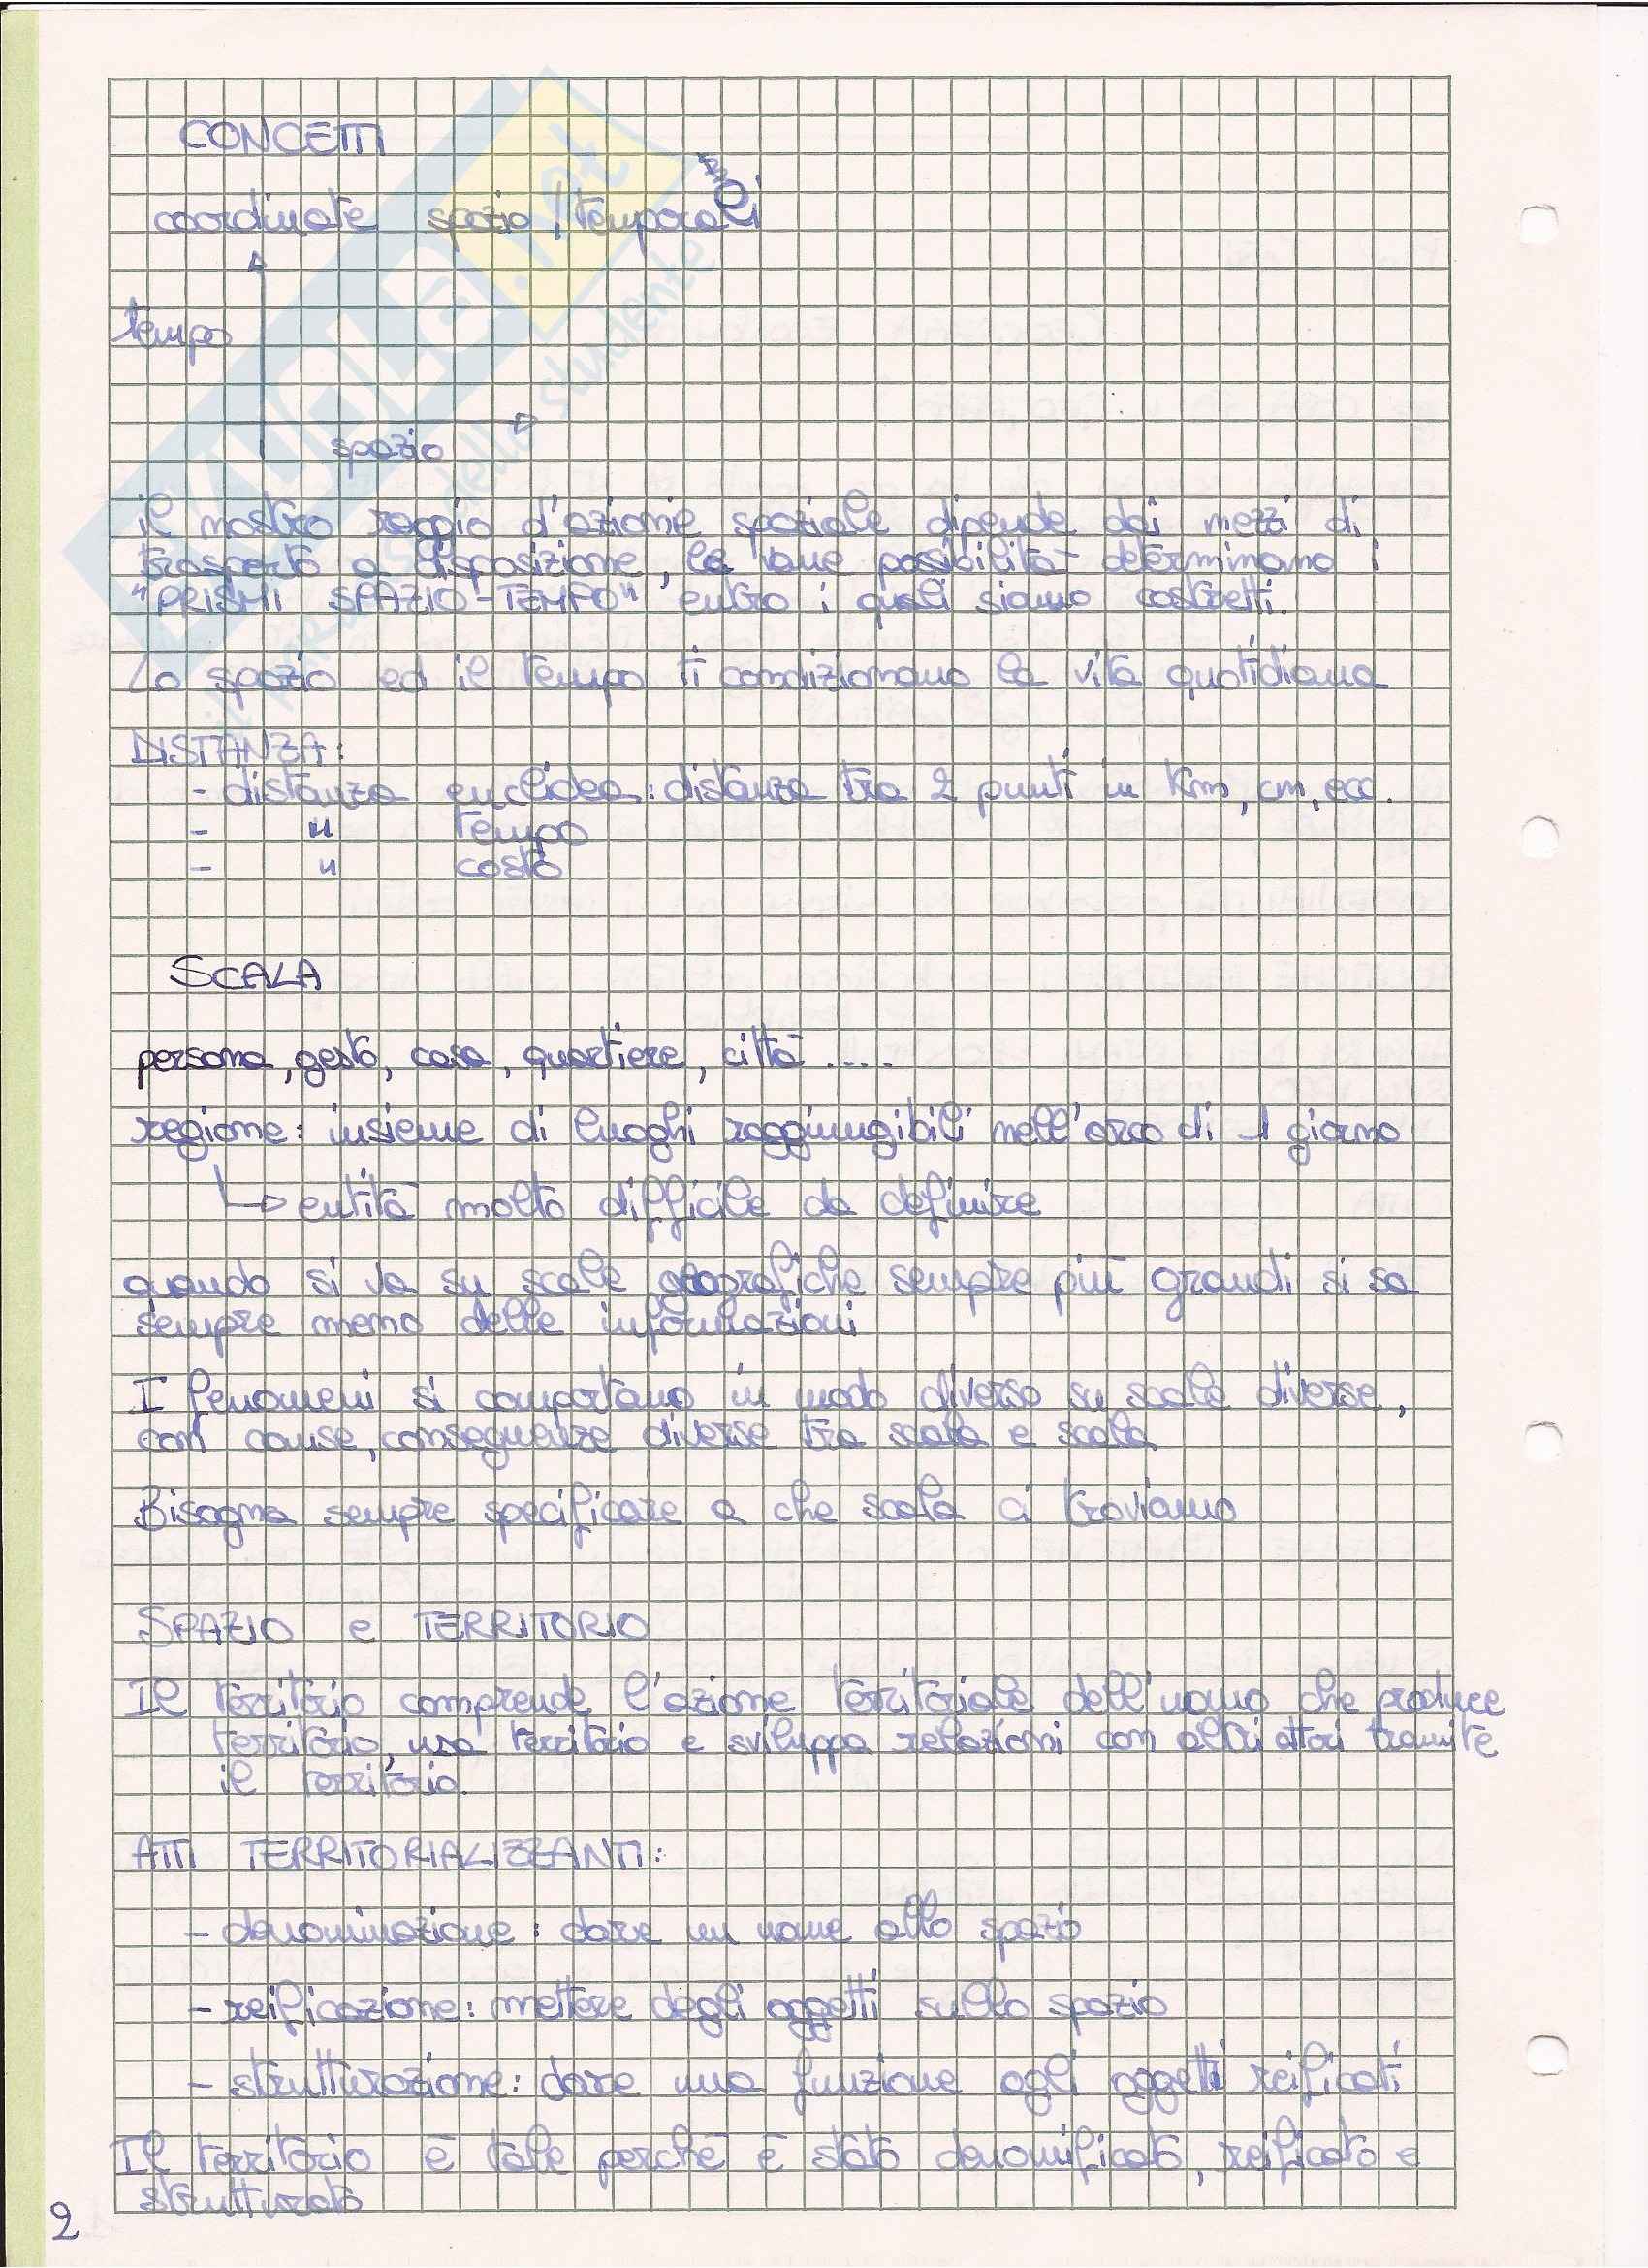 CONCETTI
coordinate spazio/temporali
tempo
spazio
il nostro raggio d'azione spaziale dipende dai mezzi di
trasporto a disposizione, le varie possibilità determinano i
"PRISMI SPAZIO-TEMPO" entro i quali siamo costretti.
Lo spazio ed il tempo ti condizionano la vita quotidiana
DISTANZA:
- distanza euclidea: distanza tra 2 punti in km, cm, ecc.
- " tempo
- " costo
SCALA
persona, gesto, casa, quartiere, città ....
regione: insieme di luoghi raggiungibili nell'arco di 1 giorno
entità molto difficile da definire
quando si va su scale geografiche sempre più grandi si sa
sempre meno delle informazioni
I fenomeni si comportano in modo diverso su scale diverse,
con cause, conseguenze diverse tra scala e scala
Bisogna sempre specificare a che scala ci troviamo
SPAZIO e TERRITORIO
Il territorio comprende l'azione territoriale dell'uomo che produce
territorio, usa territorio e sviluppa relazioni con altri attori tramite
il territorio.
ATTI TERRITORIALIZZANTI:
- denominazione: dare un nome allo spazio
- reificazione: mettere degli oggetti sullo spazio
- strutturazione: dare una funzione agli oggetti reificati
Il territorio è tale perchè è stato denomificato, reificato e
strutturato
2